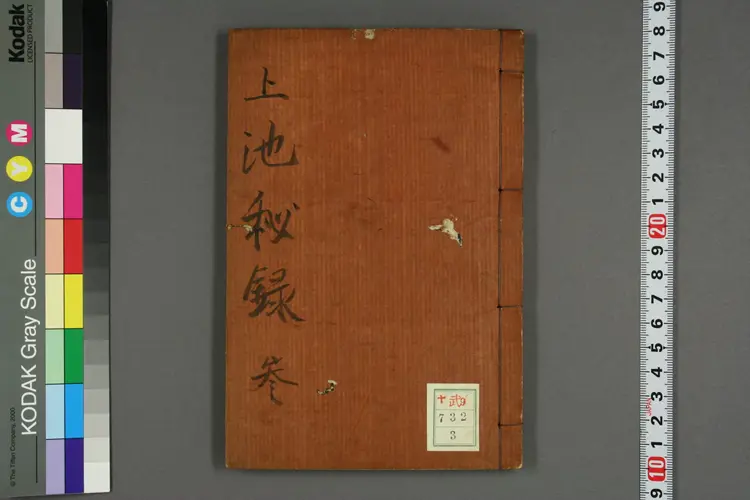 上池秘録 叁
十 武
732
3
Kodak
LICENSED PRODUCT
C Y M
KODAK Gray Scale
© The Tiffen Company, 2000
9 8 7 6 5 4 3 2 1 20 9 8 7 6 5 4 3 2 1 10 9
JAPAN